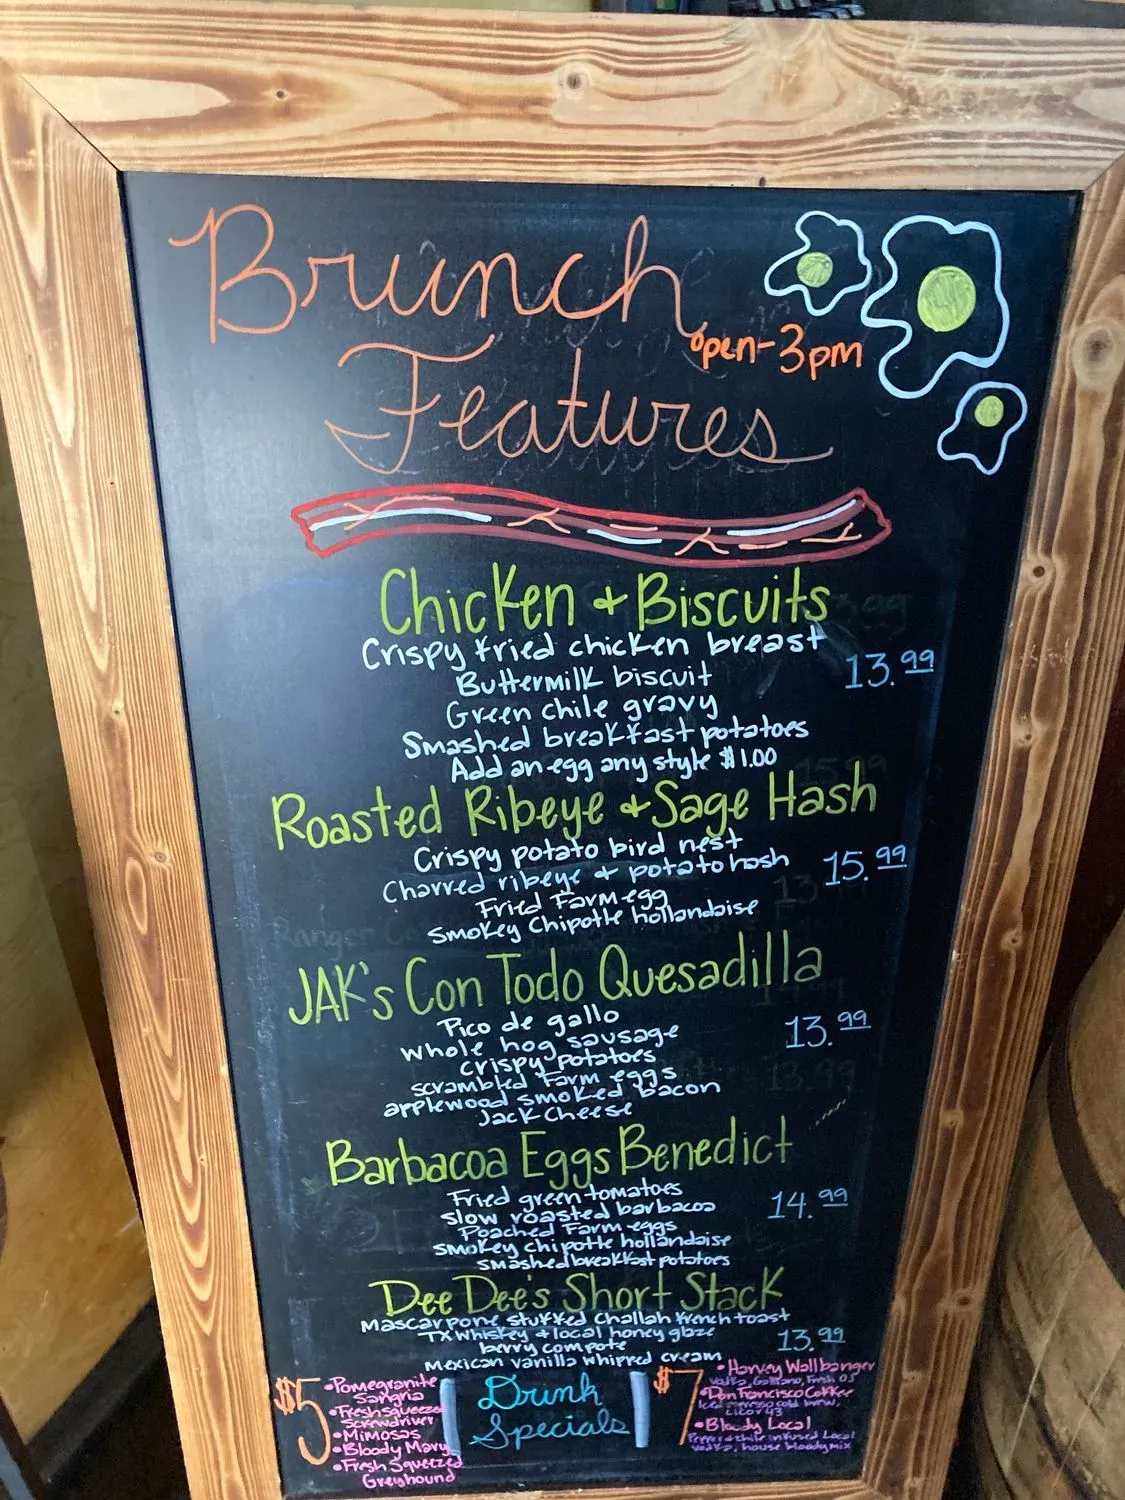 Brunch
open-3pm
Features
Chicken + Biscuits
Crispy fried chicken breast
Buttermilk biscuit
13.99
Green chile gravy
Smashed breakfast potatoes
Add an egg any style $1.00
Roasted Ribeye + Sage Hash
Crispy potato bird nest
Charred ribeye + potato hash
15.99
Fried Farm egg
Smokey Chipotle hollandaise
JAK's Con Todo Quesadilla
Pico de gallo
13.99
whole hog sausage
crispy potatoes
scrambled Farm eggs
applewood smoked bacon
Jack Cheese
Barbacoa Eggs Benedict
Fried green tomatoes
14.99
slow roasted barbacoa
Poached Farm eggs
smokey chipotle hollandaise
smashed breakfast potatoes
Dee Dee's Short Stack
Mascarpone stuffed Challah french toast
TX Whiskey + local honey glaze
13.99
berry compote
Mexican vanilla whipped cream
$5
•Pomegranite
Sangria
•Fresh squeezed
Screwdriver
•Mimosas
•Bloody Mary
•Fresh Squeezed
Greyhound
Drink
Specials
$7
•Harvey Wallbanger
Vodka, Galliano, Fresh OJ
•Don Francisco Coffee
Iced espresso cold brew,
Licor 43
•Bloody Local
Pepper + chile infused Local
vodka, house bloody mix